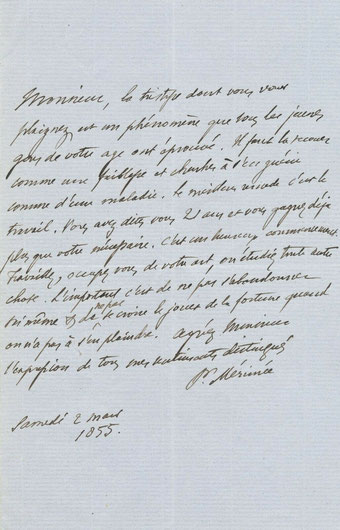 Monsieur, la tristesse dont vous vous
plaignez est un phénomène que tous les jeunes
gens de votre age ont éprouvé. Il faut la secouer
comme une faiblesse et chercher à s'en guérir
comme d'une maladie. Le meilleur remède c'est le
travail. Vous avez dites vous 21 ans et vous gagnez déjà
plus que votre nécessaire. C'est un heureux commencement.
Travaillez, occupez vous de votre art, ou étudiez toute autre
chose. L'important c'est de ne pas s'abandonner
soi même & de ne pas se croire le jouet de la fortune quand
on n'a pas à s'en plaindre. Agréez Monsieur
l'expression de tous mes sentiments distingués
Pr Mérimée
Samedi 2 mars
1855.